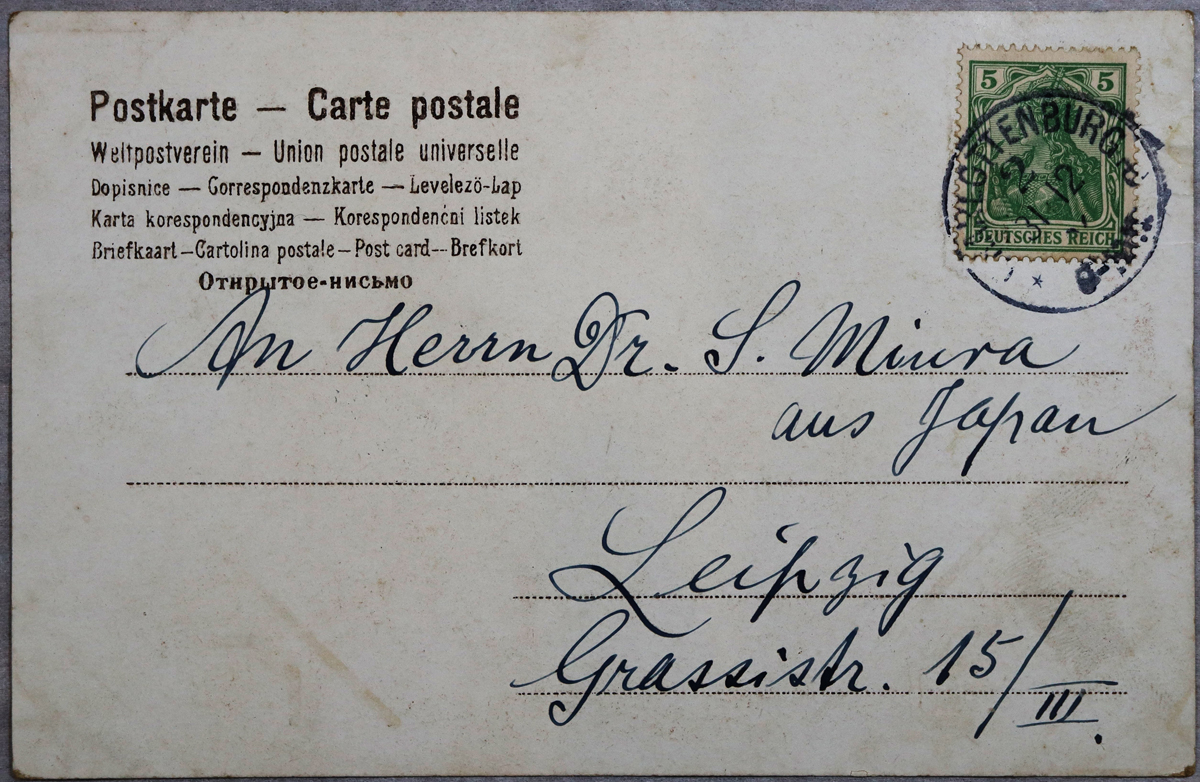 Postkarte — Carte postale
Weltpostverein — Union postale universelle
Dopisnice — Correspondenzkarte — Levelezö-Lap
Karta korespondencyjna — Korespondenćni listek
Briefkaart—Cartolina postale—Post card--Brefkort
Открытое-письмо
5 5
DEUTSCHES REICH
CHARLOTTENBURG 2
31 12
An Herrn Dr. S. Miura
aus Japan
Leipzig
Grassistr. 15/III.